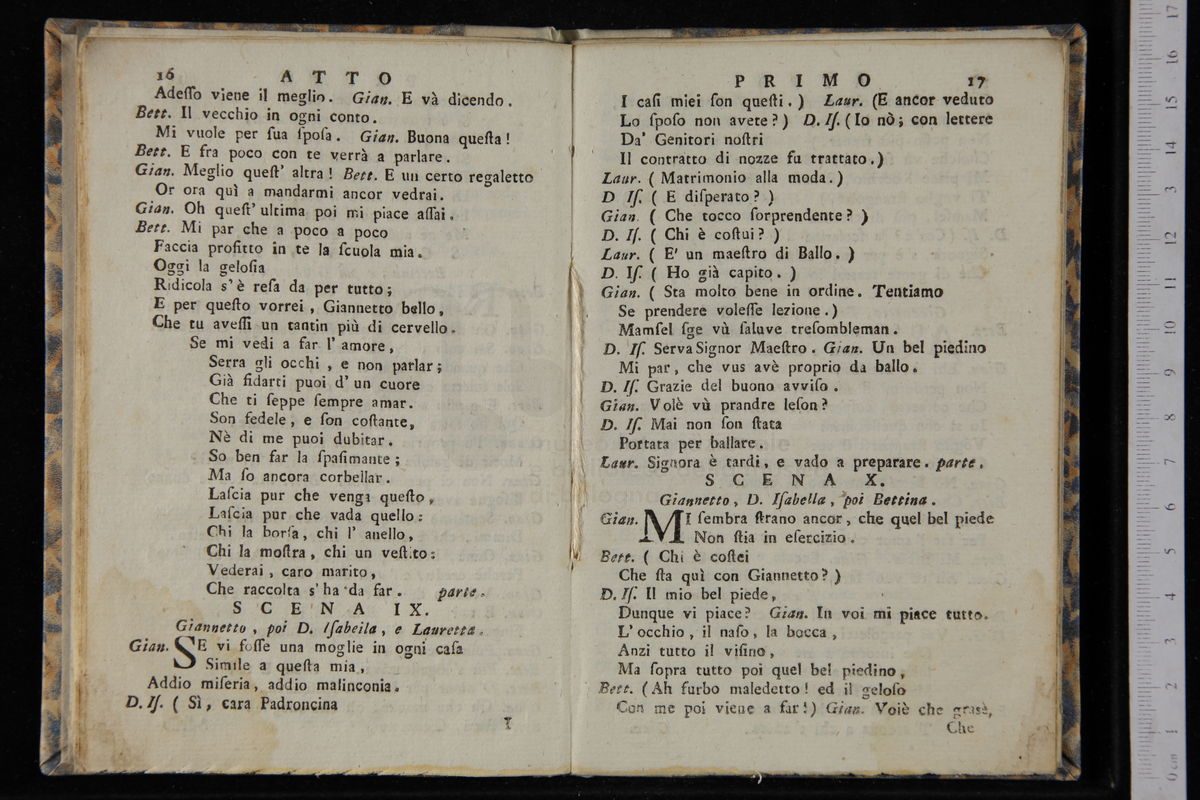 16 ATTO
Adeſſo viene il meglio. Gian. E và dicendo.
Bett. Il vecchio in ogni conto.
Mi vuole per ſua ſpoſa. Gian. Buona queſta!
Bett. E fra poco con te verrà a parlare.
Gian. Meglio queſt' altra! Bett. E un certo regaletto
Or ora quì a mandarmi ancor vedrai.
Gian. Oh queſt' ultima poi mi piace aſſai.
Bett. Mi par che a poco a poco
Faccia profitto in te la ſcuola mia.
Oggi la geloſia
Ridicola s'è reſa da per tutto;
E per queſto vorrei, Giannetto bello,
Che tu aveſſi un tantin più di cervello.
Se mi vedi a far l' amore,
Serra gli occhi, e non parlar;
Già fidarti puoi d' un cuore
Che ti ſeppe ſempre amar.
Son fedele, e ſon coſtante,
Nè di me puoi dubitar.
So ben far la ſpaſimante;
Ma ſo ancora corbellar.
Laſcia pur che venga queſto,
Laſcia pur che vada quello:
Chi la borſa, chi l' anello,
Chi la moſtra, chi un veſtito:
Vederai, caro marito,
Che raccolta s' ha da far. parte.
SCENA IX.
Giannetto, poi D. Iſabella, e Lauretta.
Gian. SE vi foſſe una moglie in ogni caſa
Simile a queſta mia,
Addio miſeria, addio malinconia.
D. Iſ. ( Sì, cara Padroncina
I
PRIMO 17
I caſi miei ſon queſti. ) Laur. (E ancor veduto
Lo ſpoſo non avete?) D. Iſ. (Io nò; con lettere
Da' Genitori noſtri
Il contratto di nozze fu trattato.)
Laur. ( Matrimonio alla moda.)
D Iſ. ( E diſperato? )
Gian. ( Che tocco ſorprendente? )
D. Iſ. ( Chi è coſtui? )
Laur. ( E' un maeſtro di Ballo. )
D. Iſ. ( Ho già capito. )
Gian. ( Sta molto bene in ordine. Tentiamo
Se prendere voleſſe lezione.)
Mamſel ſge vù ſaluve treſombleman.
D. Iſ. Serva Signor Maeſtro. Gian. Un bel piedino
Mi par, che vus avè proprio da ballo.
D. Iſ. Grazie del buono avviſo.
Gian. Volè vù prandre leſon?
D. Iſ. Mai non ſon ſtata
Portata per ballare.
Laur. Signora è tardi, e vado a preparare. parte.
SCENA X.
Giannetto, D. Iſabella, poi Bettina.
Gian. MI ſembra ſtrano ancor, che quel bel piede
Non ſtia in eſercizio.
Bett. ( Chi è coſtei
Che ſta quì con Giannetto? )
D. Iſ. Il mio bel piede,
Dunque vi piace? Gian. In voi mi piace tutto.
L' occhio, il naſo, la bocca,
Anzi tutto il viſino,
Ma ſopra tutto poi quel bel piedino,
Bett. (Ah furbo maledetto! ed il geloſo
Con me poi viene a far!) Gian. Voiè che grasè,
Che